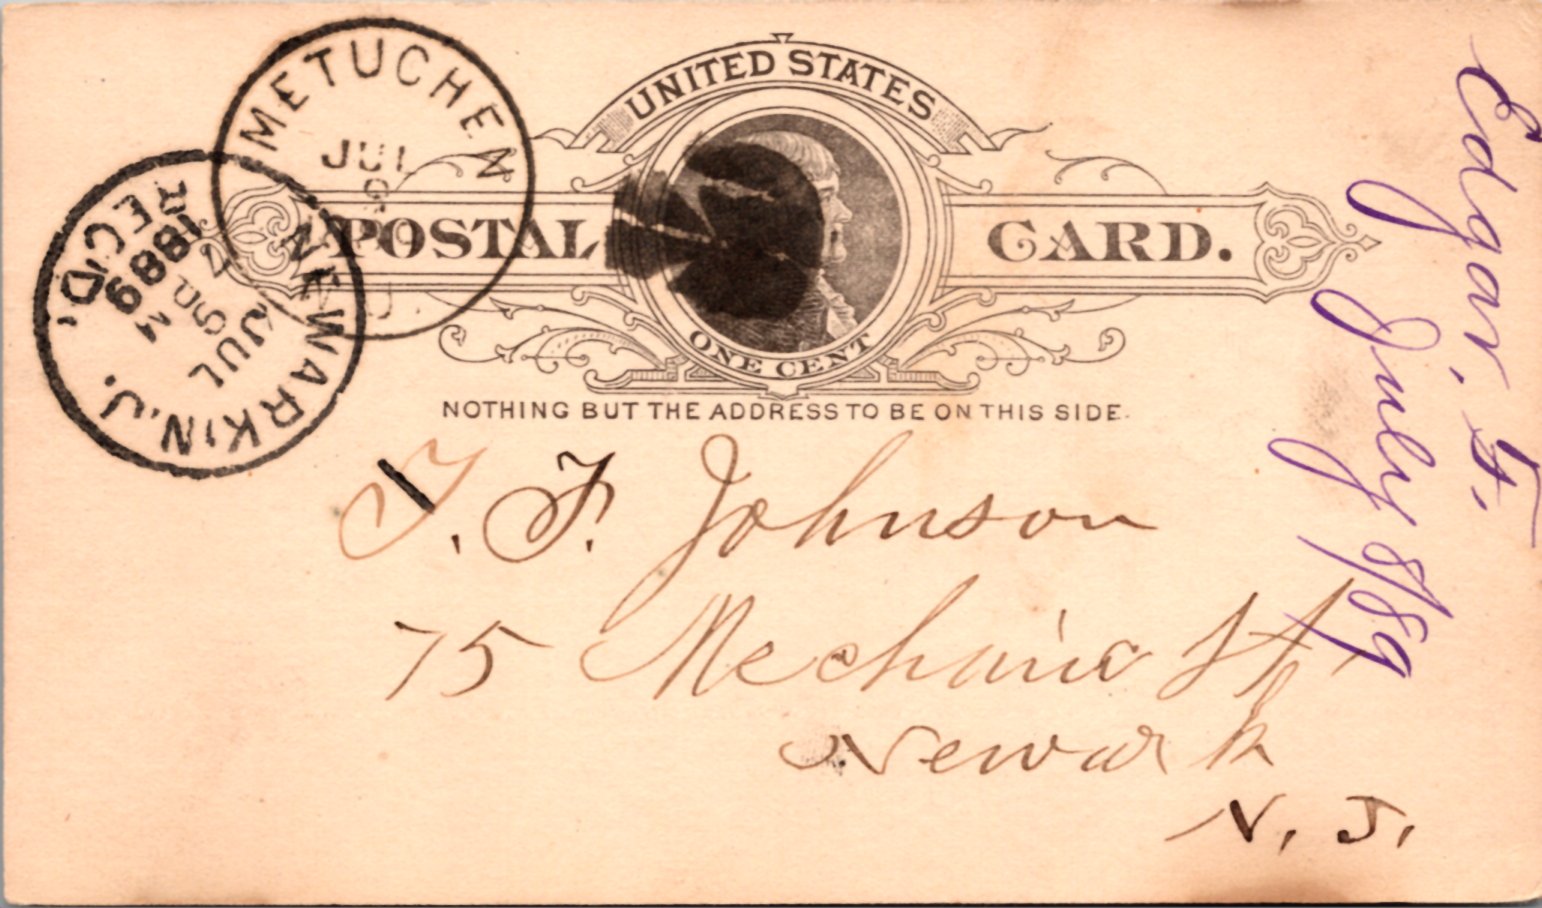 UNITED STATES
POSTAL CARD.
ONE CENT
NOTHING BUT THE ADDRESS TO BE ON THIS SIDE.
METUCHEN
JUL
8
NEWARK, N.J.
JUL
1889
REC'D.
T. F. Johnson
75 Mechanic St,
Newark
N. J.
Edgar,
July 8/89